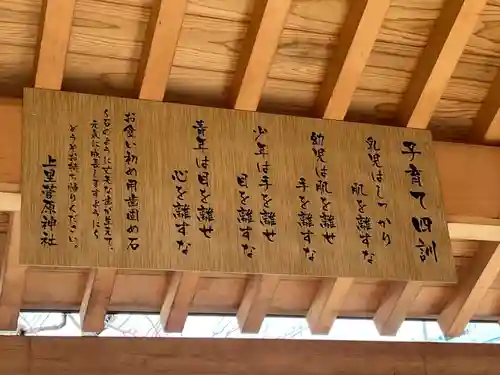 子育て四訓
乳児はしっかり
肌を離すな
幼児は肌を離せ
手を離すな
少年は手を離せ
目を離すな
青年は目を離せ
心を離すな
お食い初め用歯固め石
この石のように丈夫な歯が生えて、
元気に成長しますように。
どうぞお持ち帰りください。
上里菅原神社